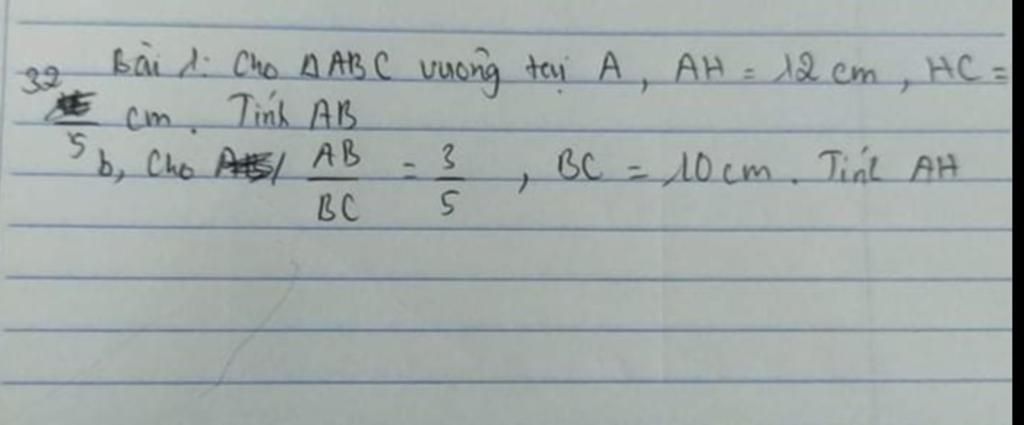 Bài 1: Cho ΔABC vuông tại A, AH = 12 cm, HC =
32/5 cm. Tính AB
b, Cho AB/BC = 3/5, BC = 10 cm. Tính AH